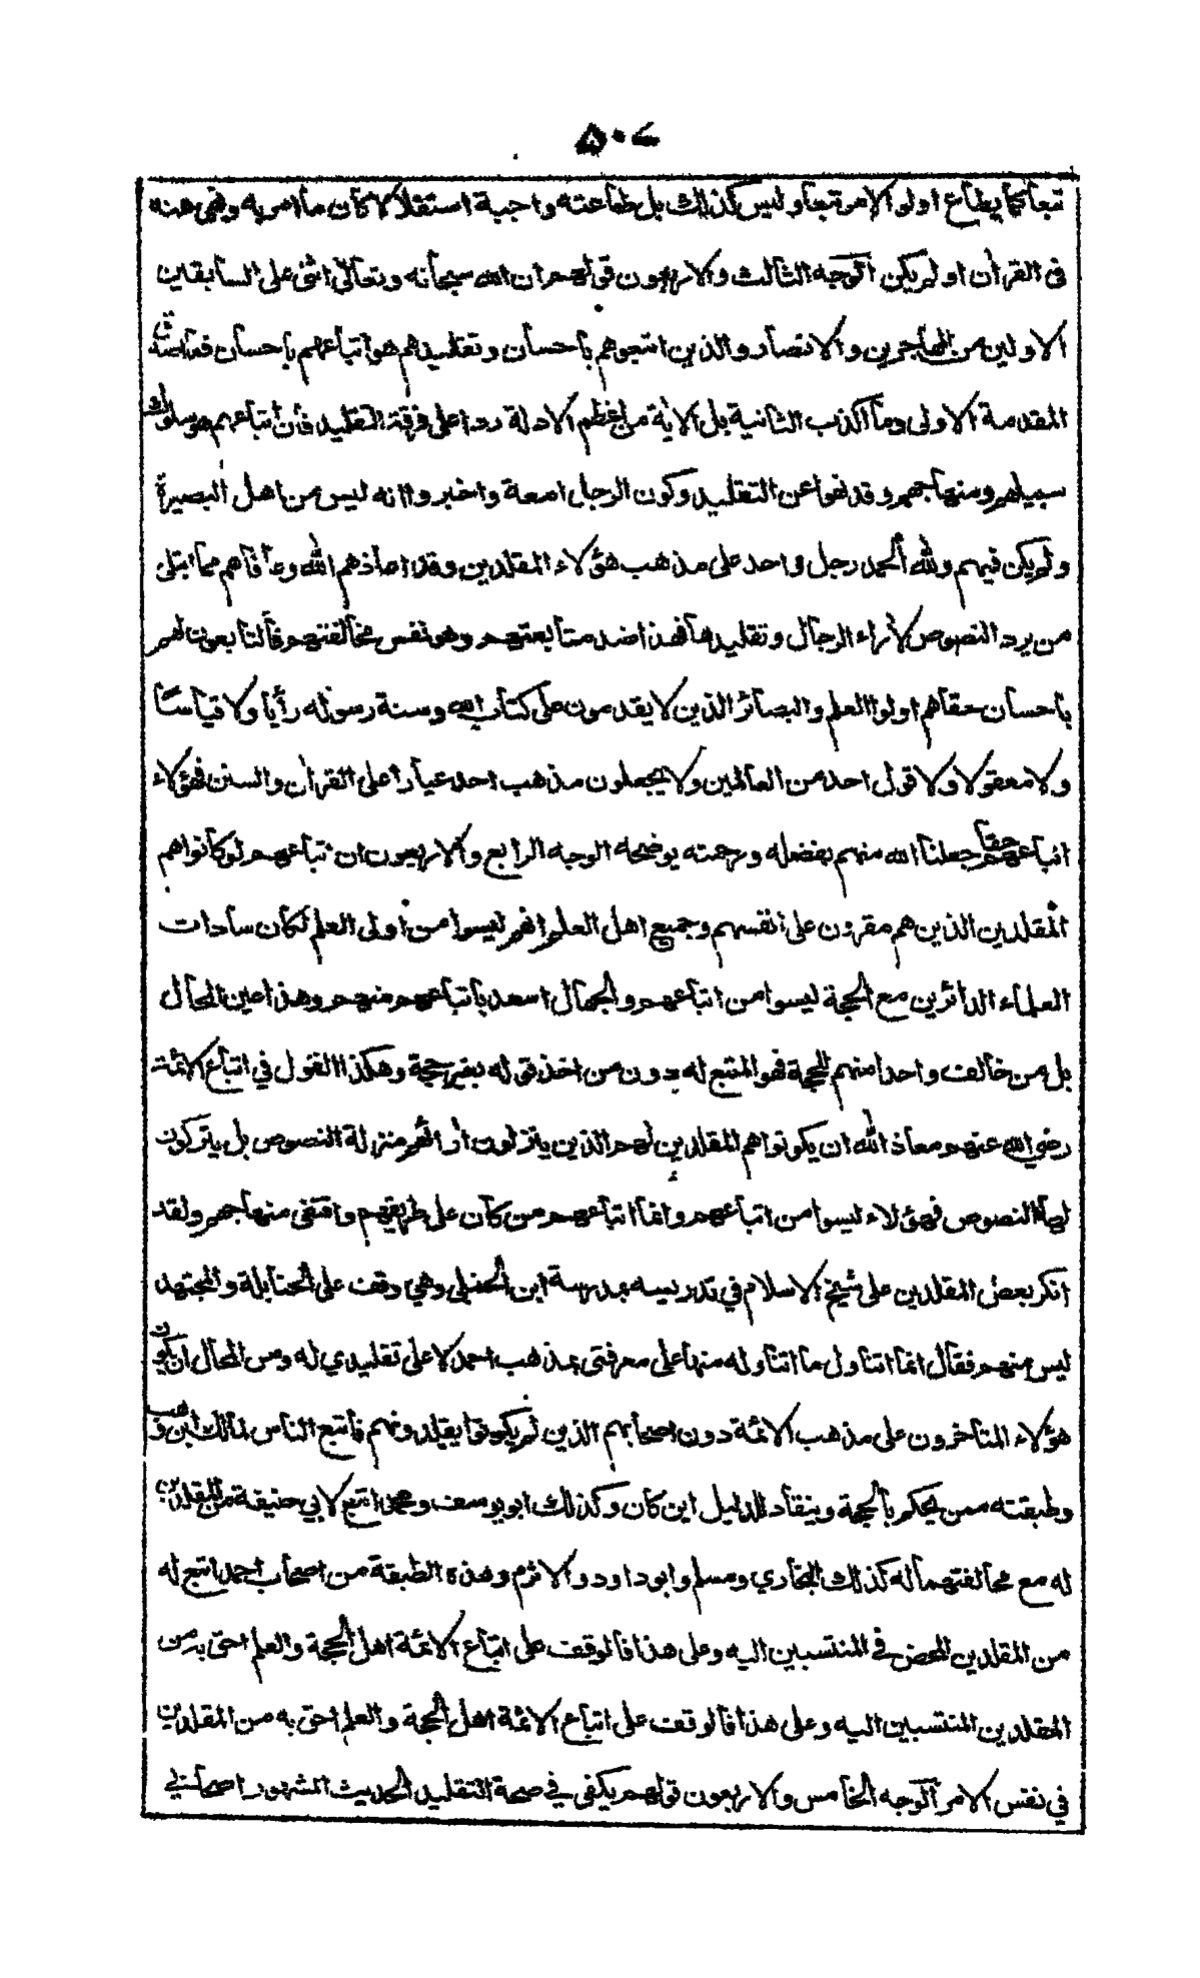 ٥٠٧
تبعا كما يطاع اولو الامر تبعا وليس كذلك بل طاعته واجبة استقلالا كان ما امر به ونهى عنه
فى القرآن او لم يكن الوجه الثالث والاربعون قولهم ان الله سبحانه وتعالى اثنى على السابقين
الاولين من المهاجرين والانصار والذين اتبعوهم باحسان وتقليدهم هو اتباعهم باحسان فما اصدق
المقدمة الاولى وما اكذب الثانية بل الآية من اعظم الادلة ردا على فرقة التقليد فان اتباعهم هو سلوك
سبيلهم ومنهاجهم وقد نهوا عن التقليد وكون الرجل امعة واخبروا انه ليس من اهل البصيرة
ولم يكن فيهم ولله الحمد رجل واحد على مذهب هؤلاء المقلدين وقد اعاذهم الله وعافاهم مما ابتلى
من يرد النصوص لآراء الرجال وتقليدها فهذا ضد متابعتهم وهو نفس مخالفتهم فالتابعون لهم
باحسان حقا هم اولوا العلم والبصائر الذين لا يقدمون على كتاب الله وسنة رسوله رأيا ولا قياسا
ولا معقولا ولا قول احد من العالمين ولا يجعلون مذهب احد عيارا على القرآن والسنن فهؤلاء
اتباعهم حقا جعلنا الله منهم بفضله ورحمته يوضحه الوجه الرابع والاربعون ان اتباعهم لو كانوا هم
المقلدين الذين هم مقرون على انفسهم وجميع اهل العلم انهم ليسوا من اولى العلم لكان سادات
العلماء الدائرين مع الحجة ليسوا من اتباعهم والجهال اسعد باتباعهم منهم وهذا عين المحال
بل من خالف واحدا منهم للحجة فهو المتبع له دون من اخذ قوله بغير حجة وهكذا القول في اتباع الائمة
رضي الله عنهم ومعاذ الله ان يكونوا هم المقلدين لهم الذين ينزلون آراءهم منزلة النصوص بل يتركون
لها النصوص فهؤلاء ليسوا من اتباعهم وانما اتباعهم من كان على طريقهم واقتفى منهاجهم ولقد
انكر بعض المقلدين على شيخ الاسلام في تدريسه بمدرسة ابن الحنبلى وهي وقف على الحنابلة والمجتهد
ليس منهم فقال انما اتناول ما اتناوله منها على معرفتى بمذهب احمد لا على تقليدي له ومن المحال ان يكون
هؤلاء المتأخرون على مذهب الائمة دون اصحابهم الذين لم يكونوا يقلدونهم فاتبع الناس لمالك ابن وهب
وطبقته ممن يحكم بالحجة وينقاد للدليل اين كان وكذلك ابو يوسف ومحمد اتبع لابي حنيفة من المقلدين
له مع مخالفتهما له كذلك البخاري ومسلم وابو داود والاثرم وهذه الطبقة من اصحاب احمد اتبع له
من المقلدين المحض في المنتسبين اليه وعلى هذا فالوقف على اتباع الائمة اهل الحجة والعلم احق به من
المقلدين المنتسبين اليه وعلى هذا فالوقف على اتباع الائمة اهل الحجة والعلم احق به من المقلدين
في نفس الامر الوجه الخامس والاربعون قولهم يكفى في صحة التقليد الحديث المشهور اصحابي